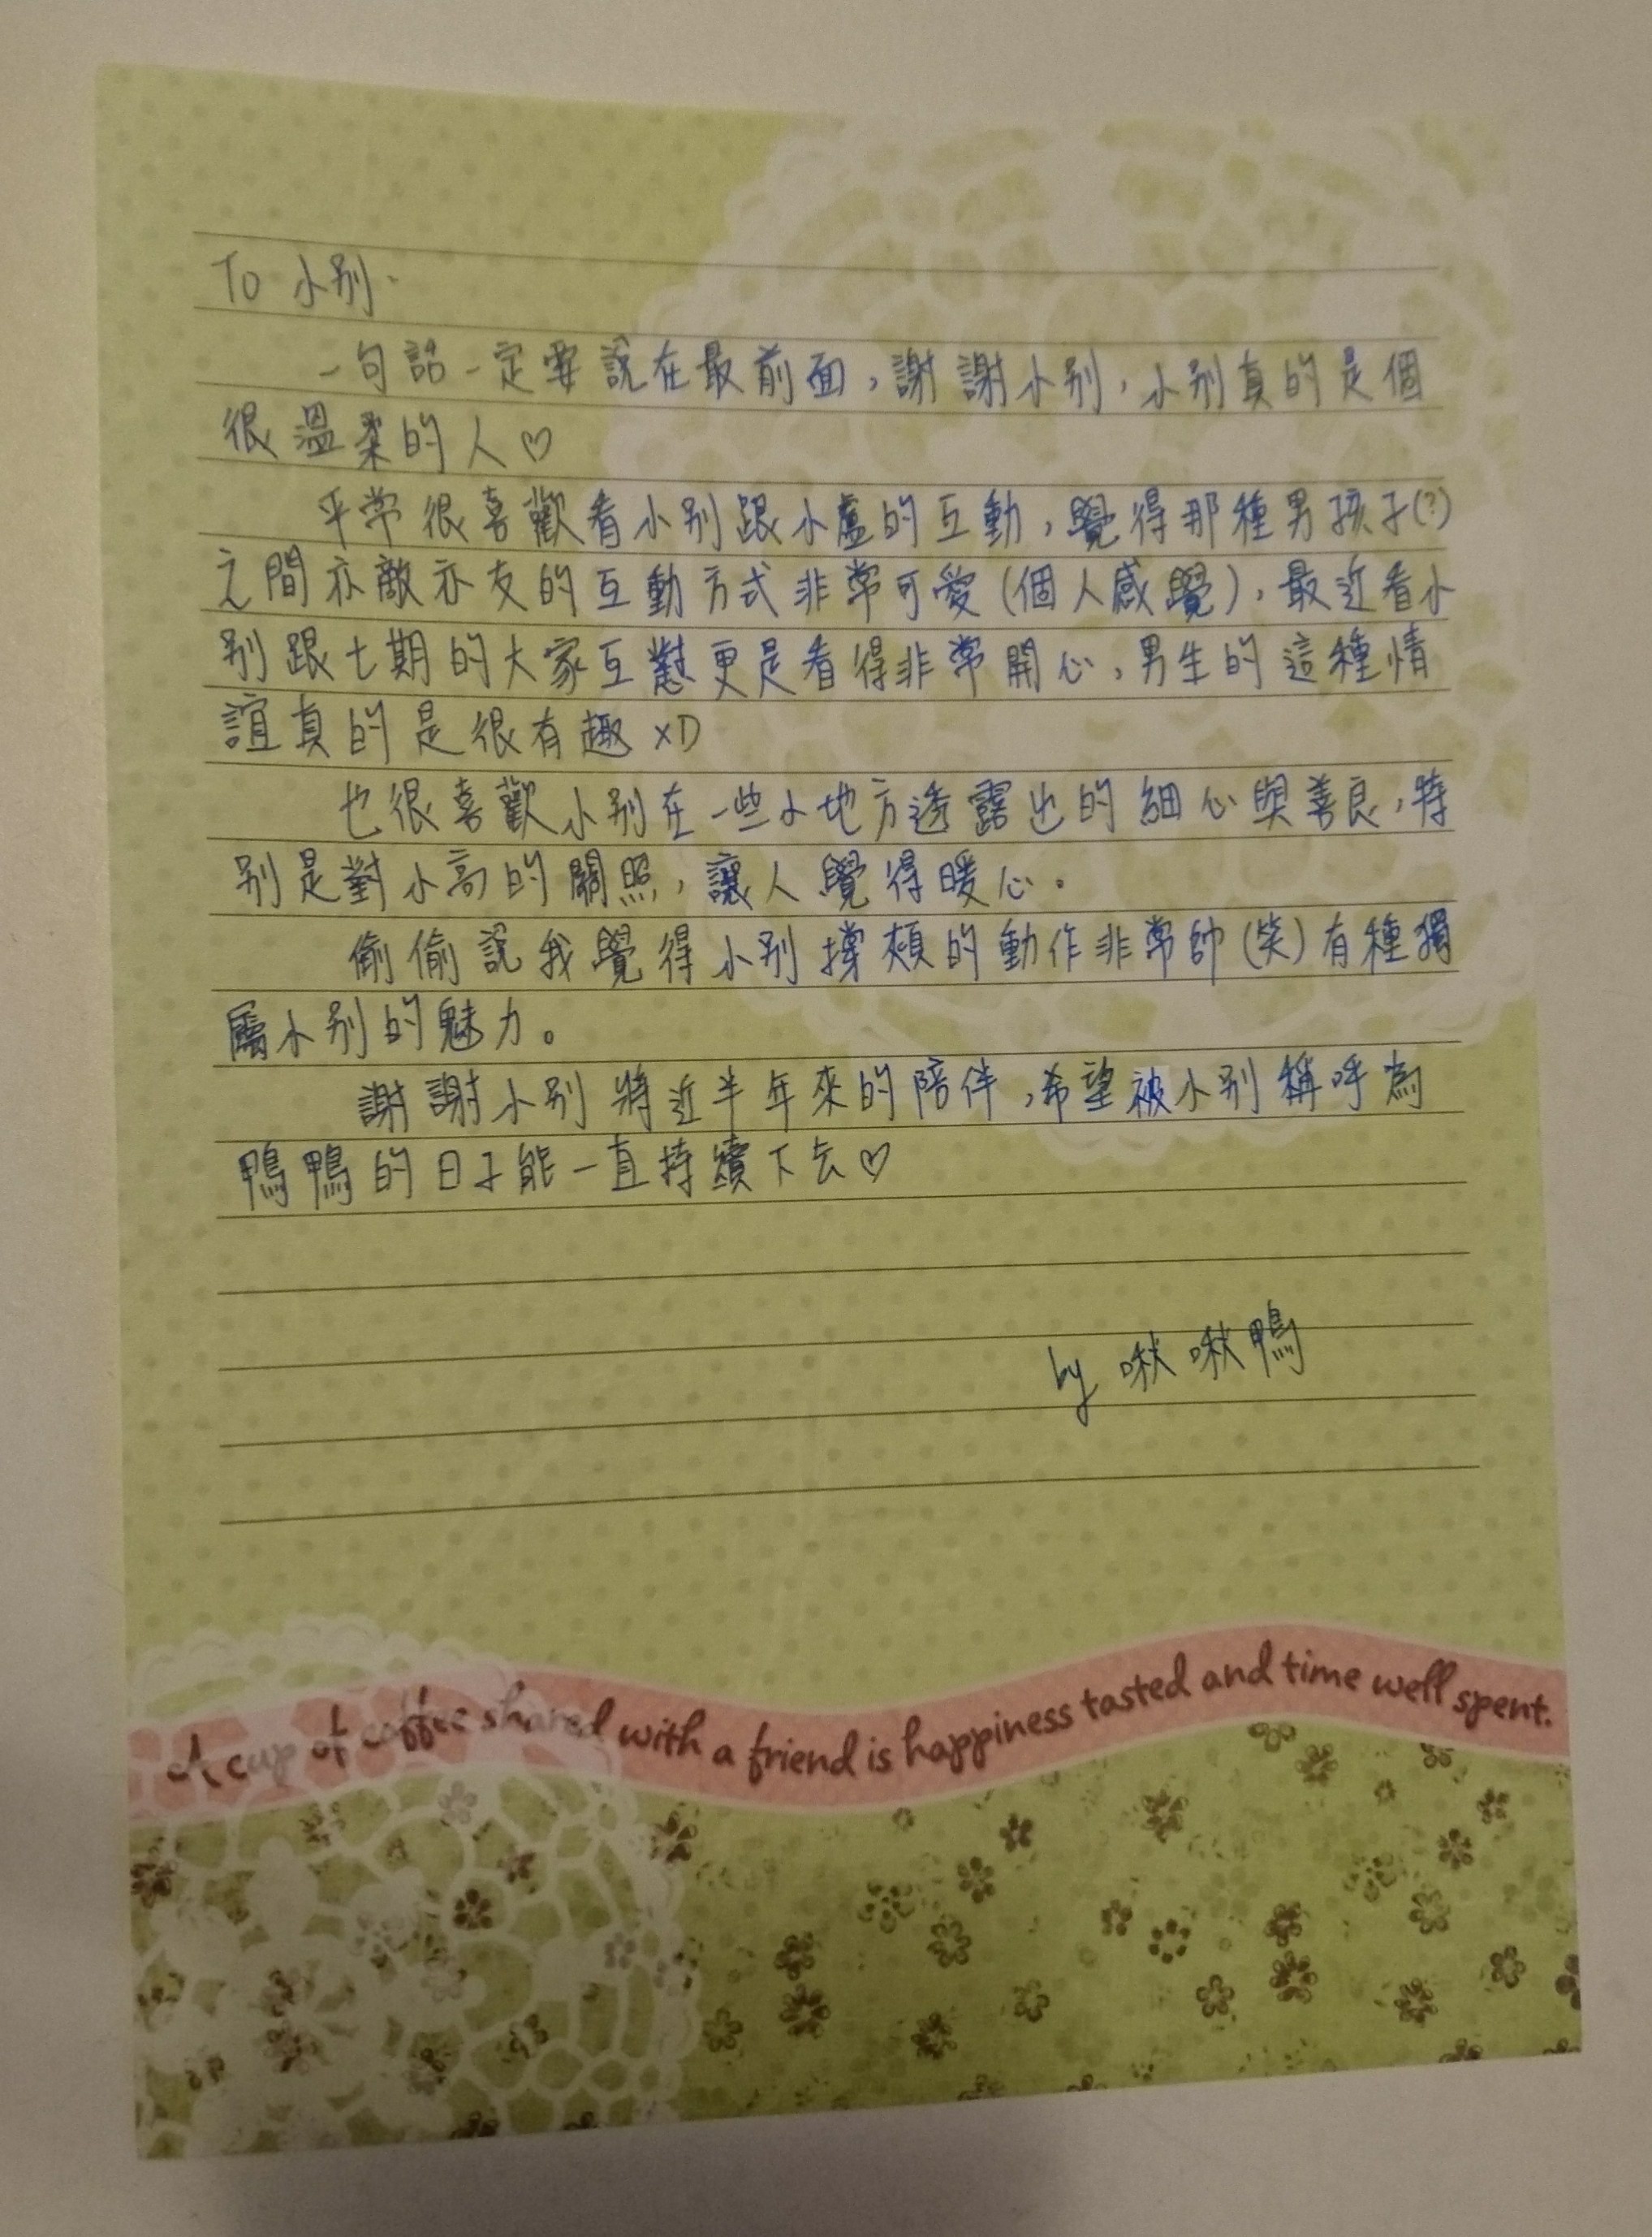 To 小别.
一句話一定要說在最前面,謝謝小别,小别真的是個
很溫柔的人♡
平常很喜歡看小别跟小盧的互動,覺得那種男孩子(?)
之間亦敵亦友的互動方式非常可愛(個人感覺),最近看小
别跟七期的大家互懟更是看得非常開心,男生的這種情
誼真的是很有趣XD
也很喜歡小别在一些小地方透露出的細心與善良,特
别是對小高的關照,讓人覺得暖心。
偷偷說我覺得小别撐頰的動作非常帥(笑)有種獨
屬小别的魅力。
謝謝小别將近半年來的陪伴,希望被小别稱呼為
鴨鴨的日子能一直持續下去♡
by 啾啾鴨
A cup of coffee shared with a friend is happiness tasted and time well spent.